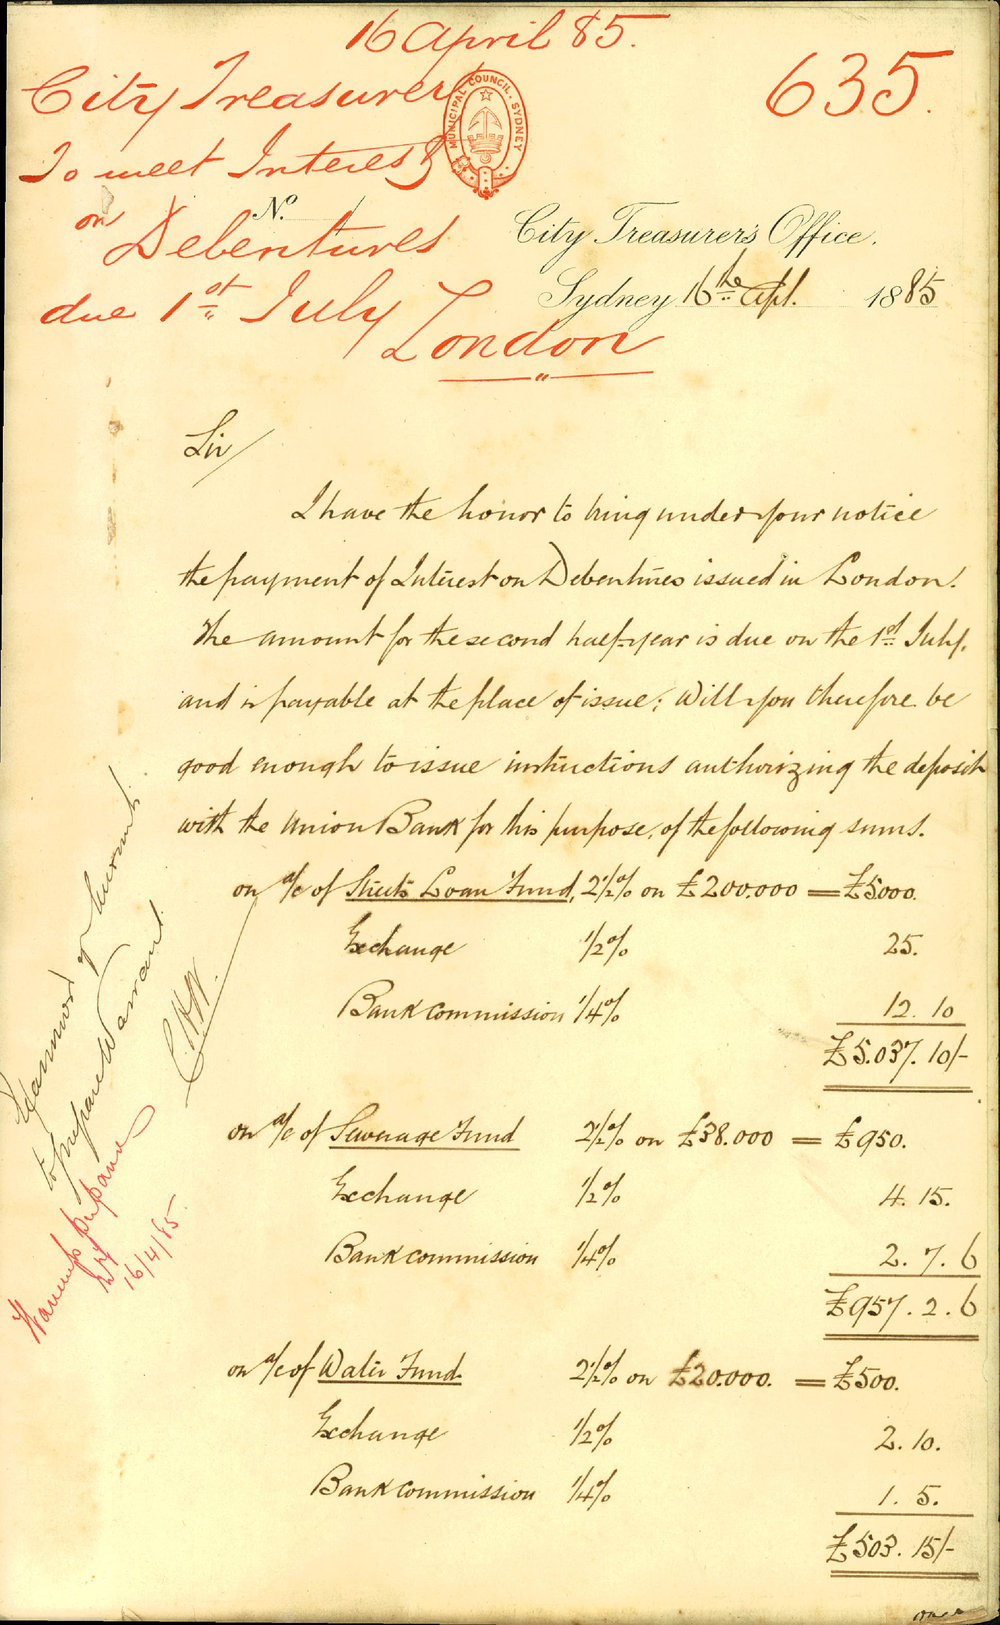 16 April 85.
635.
City Treasurer
To meet Interest
on
Debentures
due 1st July
London
MUNICIPAL COUNCIL · SYDNEY
No.
City Treasurer's Office.
Sydney 16th Apl. 1885
Sir/
I have the honor to bring under your notice
the payment of Interest on Debentures issued in London.
The amount for the second half-year is due on the 1st July,
and is payable at the place of issue; Will you therefore be
good enough to issue instructions authorizing the deposit
with the Union Bank for this purpose, of the following sums.
on a/c of Streets Loan Fund, 2½% on £200.000 = £5000.
Exchange ½% 25.
Bank commission ¼% 12. 10
£5.037. 10/-
on a/c of Sewerage Fund 2½% on £38.000 = £950.
Exchange ½% 4. 15.
Bank commission ¼% 2. 7. 6
£957. 2. 6
on a/c of Water Fund. 2½% on £20.000. = £500.
Exchange ½% 2. 10.
Bank commission ¼% 1. 5.
£503. 15/-
to prepare Warrant.
16/4/85.